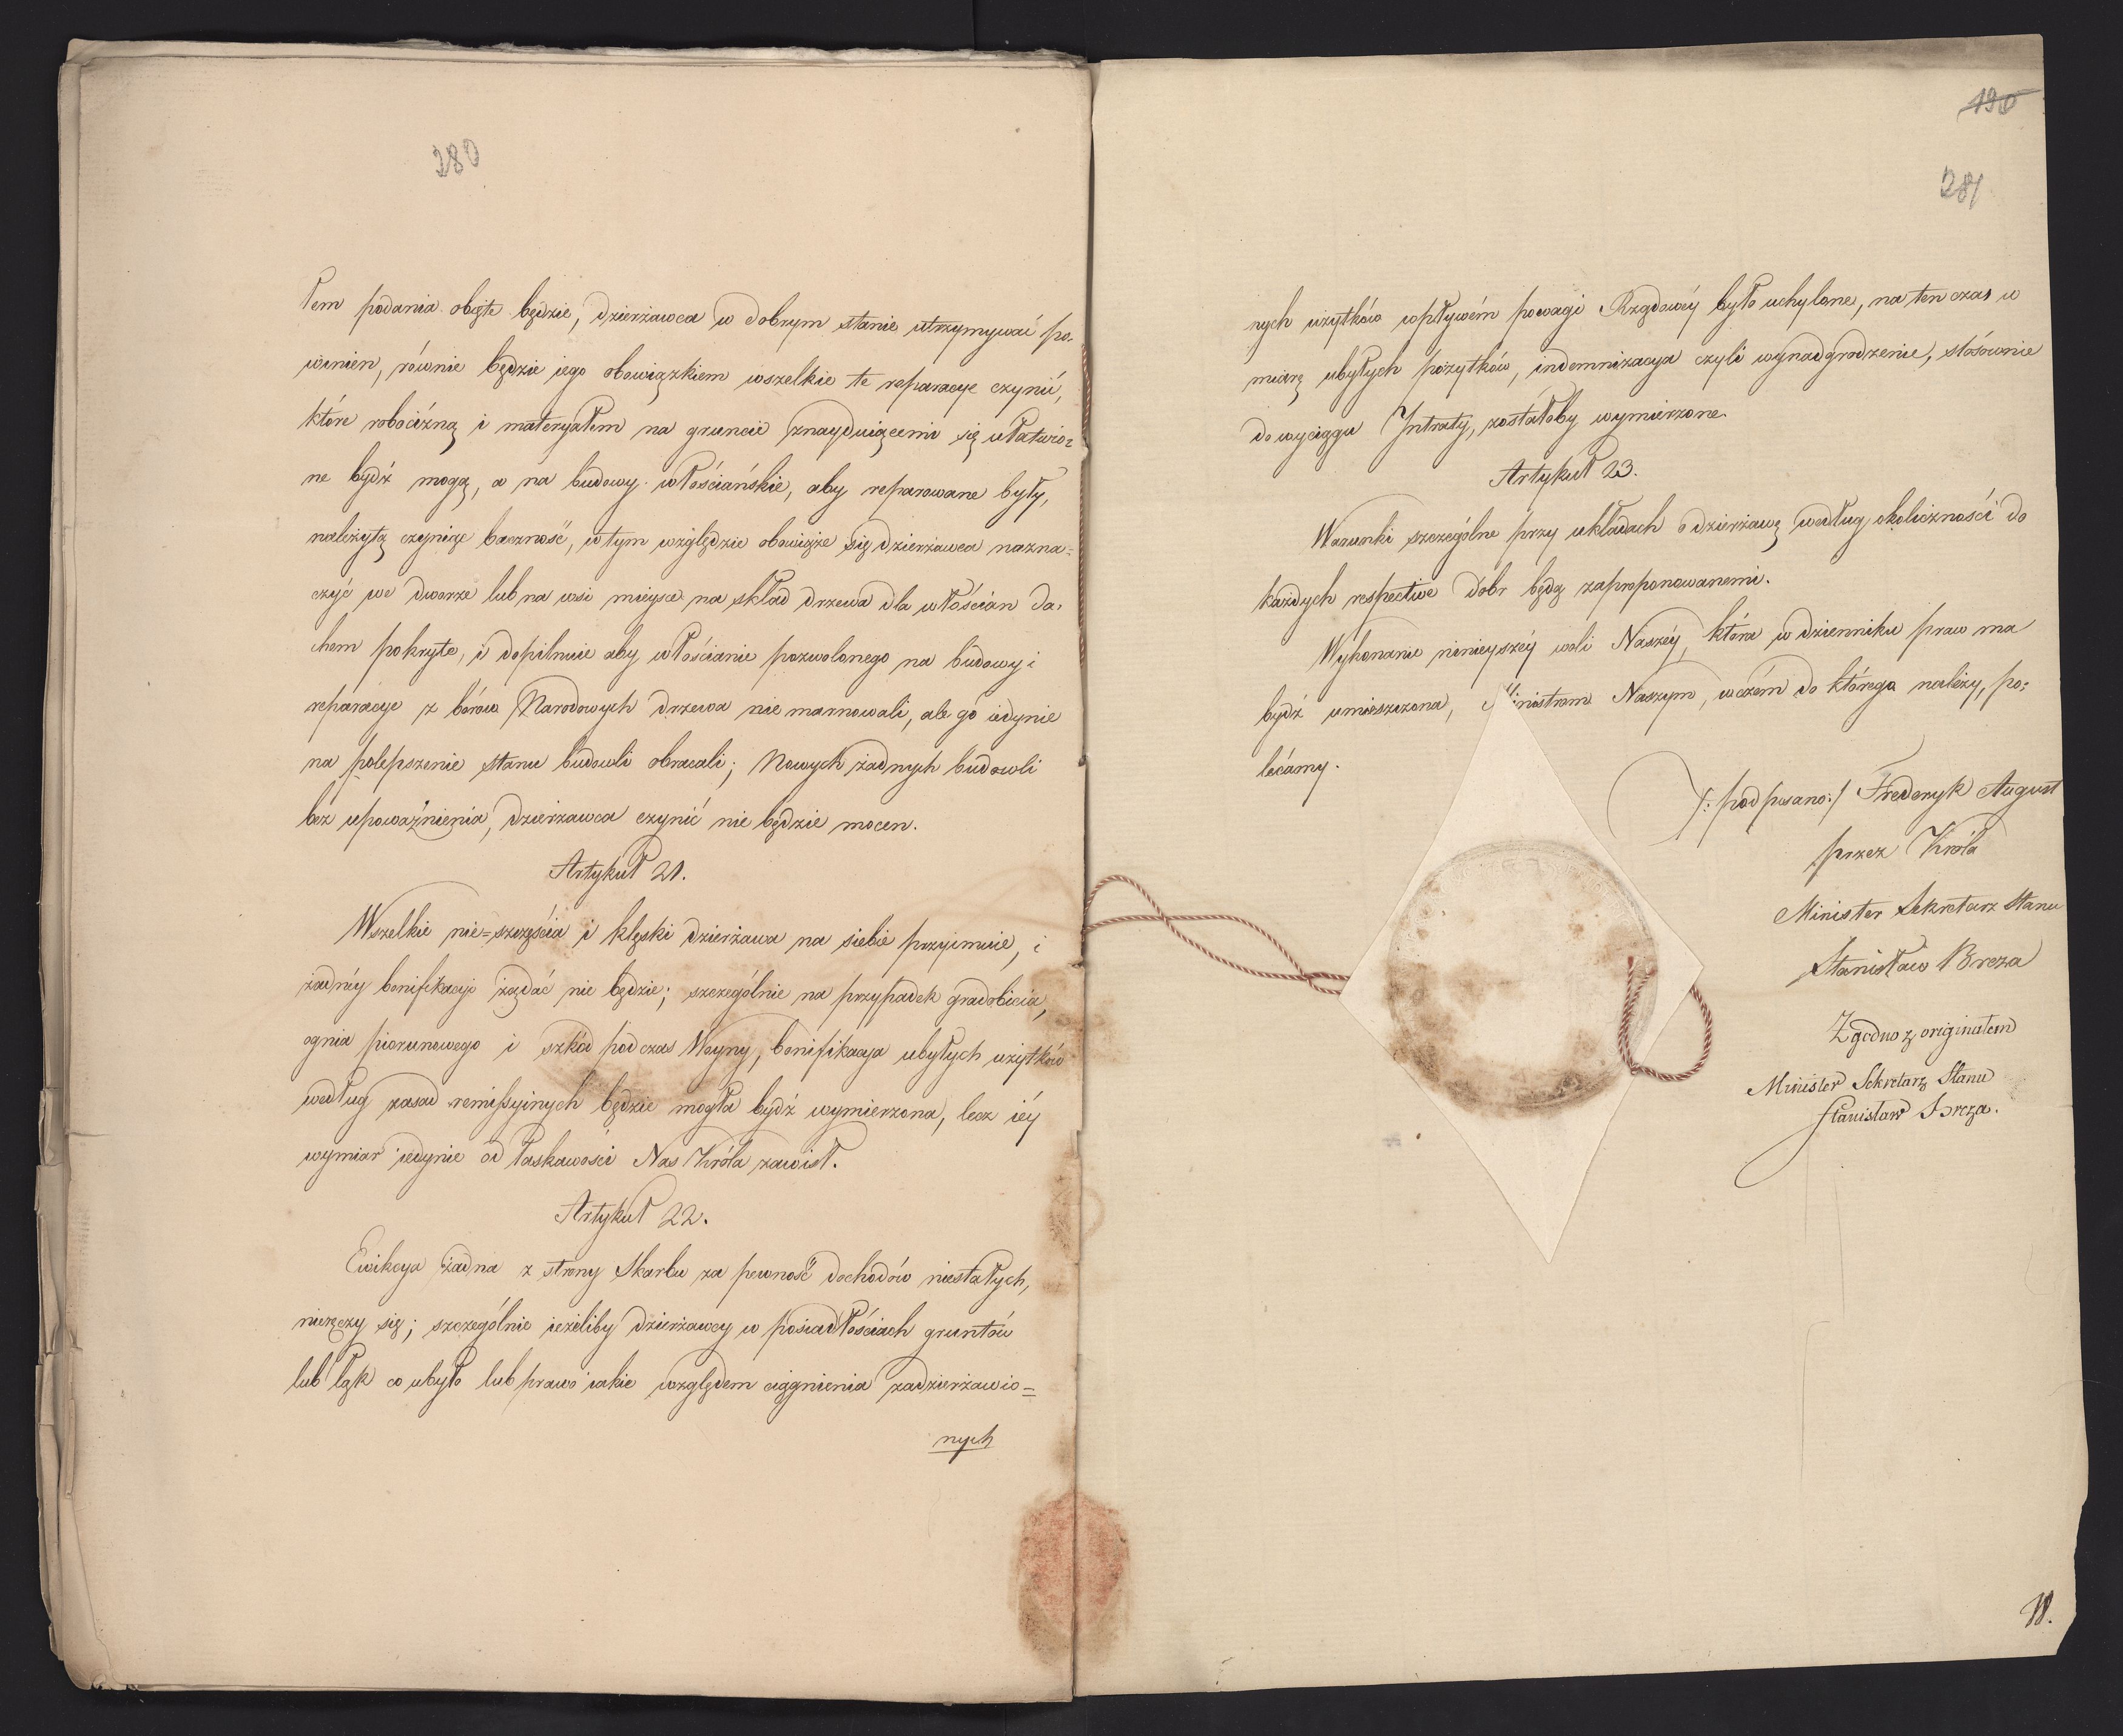 280
łem podania obięte będzie, dzierżawca w dobrym stanie utrzymywać po-
winien, równie będzie iego obowiązkiem wszelkie te reparacye czynić,
które robocizną i materyałem na gruncie znayduiącemi się ułatwio=
ne bydź mogą, a na budowy włościańskie, aby reparowane były,
należytą czyniąc baczność, w tym względzie obowiąże się dzierżawca nazna=
czyć we dworze lub na wsi mieysce na skład drzewa dla włościan da=
chem pokryte, i dopilnuie aby włościanie pozwolonego na budowy i
reparacye z borów Narodowych drzewa nie marnowali, ale go iedynie
na polepszenie stanu budowli obracali; Nowych żadnych budowli
bez upoważnienia, dzierżawca czynić nie będzie mocen.
Artykuł 21.
Wszelkie nie=szczęścia i klęski dzierżawca na siebie przyimuie, i
żadnéy bonifikacyi żądać nie będzie; szczególnie na przypadek gradobicia,
ognia piorunowego i szkód podczas Woyny, bonifikacya ubyłych użytków
według zasad remissyinych będzie mogła bydź wymierzona, lecz iéy
wymiar iedynie od łaskawości Nas Króla zawisł.
Artykuł 22.
Ewikcya żadna z strony Skarbu za pewność dochodów niestałych,
nieręczy się; szczególnie ieżeliby dzierżawcy w posiadłościach gruntów
lub łąk co ubyło lub prawo iakie względem ciągnienia zadzierżawio=
nych
190
281
nych użytków wpływém powagi Rządowéy było uchylone, na ten czas w
miarę ubyłych pożytków, indemnizacya czyli wynadgrodzenie, stósownie
do wyciągu Intraty, zostałoby wymierzone.
Artykuł 23.
Warunki szczególne przy układach o dzierżawę według okoliczności do
każdych respective dobr będą zaproponowanemi.
Wykonanie ninieyszéy woli Naszéy, która w dzienniku praw ma
bydź umieszczona, Ministrom Naszym, w czém do którego należy, po=
lecámy.
/: podpisano :/ Frederyk August
przez Króla
Minister Sekretarz Stanu
Stanisław Breza
Zgodno z originałem
Minister Sekretarz Stanu
Stanisław Breza.